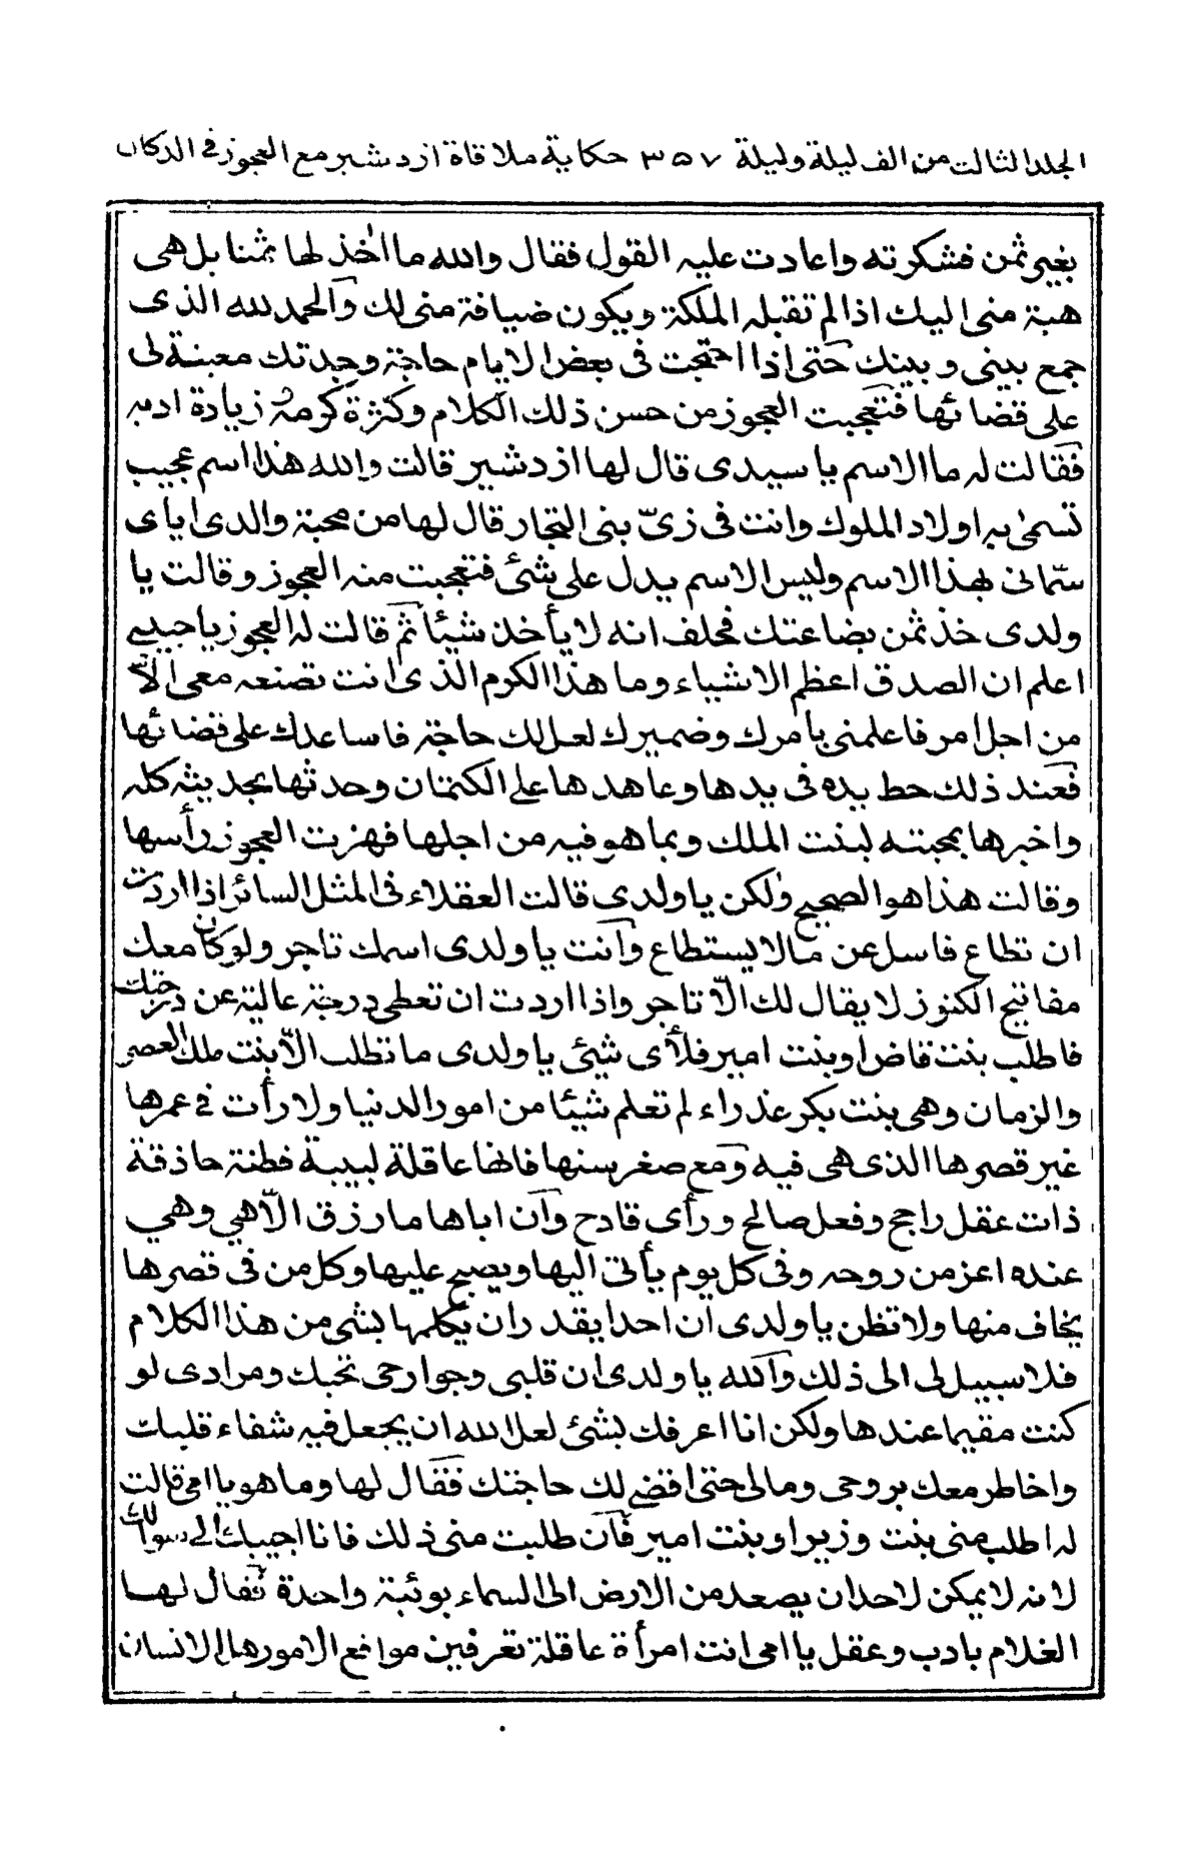 الجلد الثالث من الف ليلة وليلة ٣٥٧ حكاية ملاقاة ازدشير مع العجوز فى الدكان
بغير ثمن فشكرته واعادت عليه القول فقال والله ما اٰخذ لها ثمنا بل هى
هبة منى اليك اذا لم تقبله الملكة ويكون ضيافة منى لك والحمد لله الذى
جمع بينى وبينك حتى اذا احتجت فى بعض الايام حاجة وجدتك معينة لى
على قضائها فتعجبت العجوز من حسن ذلك الكلام وكثرة كرمه وزيادة ادبه
فقالت له ما الاسم يا سيدى قال لها ازدشير قالت والله هذا اسم عجيب
تسمىٰ به اولاد الملوك وانت فى زىّ بنى التجار قال لها من محبة والدى اياى
سمّانى بهذا الاسم وليس الاسم يدل على شئ فتعجبت منه العجوز وقالت يا
ولدى خذ ثمن بضاعتك فحلف انه لا يأخذ شيئا ثم قالت له العجوز يا حبيبى
اعلم ان الصدق اعظم الاشياء وما هذا الكرم الذى انت تصنعه معى الّا
من اجل امر فاعلمنى بامرك وضميرك لعل لك حاجة فاساعدك على قضائها
فعند ذلك حط يده فى يدها وعاهدها على الكتمان وحدثها بحديثه كله
واخبرها بمحبته لبنت الملك وبما هو فيه من اجلها فهزت العجوز رأسها
وقالت هذا هو الصحيح ولكن يا ولدى قالت العقلاء فى المثل السائر اذا اردت
ان تطاع فاسل عن مالا يستطاع وانت يا ولدى اسمك تاجر ولو كان معك
مفاتيح الكنوز لا يقال لك الّا تاجر واذا اردت ان تعطى درجة عالية عن درجتك
فاطلب بنت قاض او بنت امير فلأى شئ يا ولدى ما تطلب الّا بنت ملك العصر
والزمان وهى بنت بكر عذراء لم تعلم شيئا من امور الدنيا ولا رأت فى عمرها
غير قصرها الذى هى فيه ومع صغر سنها فانها عاقلة لبيبة فطنة حاذقة
ذات عقل راجح وفعل صالح ورأى قادح وان اباها ما رزق الّا هى وهى
عنده اعز من روحه وفى كل يوم يأتى اليها ويصبح عليها وكل من فى قصرها
يخاف منها ولا تظن يا ولدى ان احدا يقدر ان يكلمها بشئ من هذا الكلام
فلا سبيل لى الى ذلك والله يا ولدى ان قلبى وجوارحى تحبك ومرادى لو
كنت مقيما عندها ولكن انا اعرفك بشئ لعل الله ان يجعل فيه شفاء قلبك
واخاطر معك بروحى ومالى حتى اقضى لك حاجتك فقال لها وما هو يا امى قالت
له اطلب منى بنت وزير او بنت امير فان طلبت منى ذلك فانا اجيبك الى سوالك
لانه لا يمكن لاحد ان يصعد من الارض الى السماء بوثبة واحدة فقال لها
الغلام بادب وعقل يا امى انت امرأة عاقلة تعرفين مواقع الامور هل الانسان